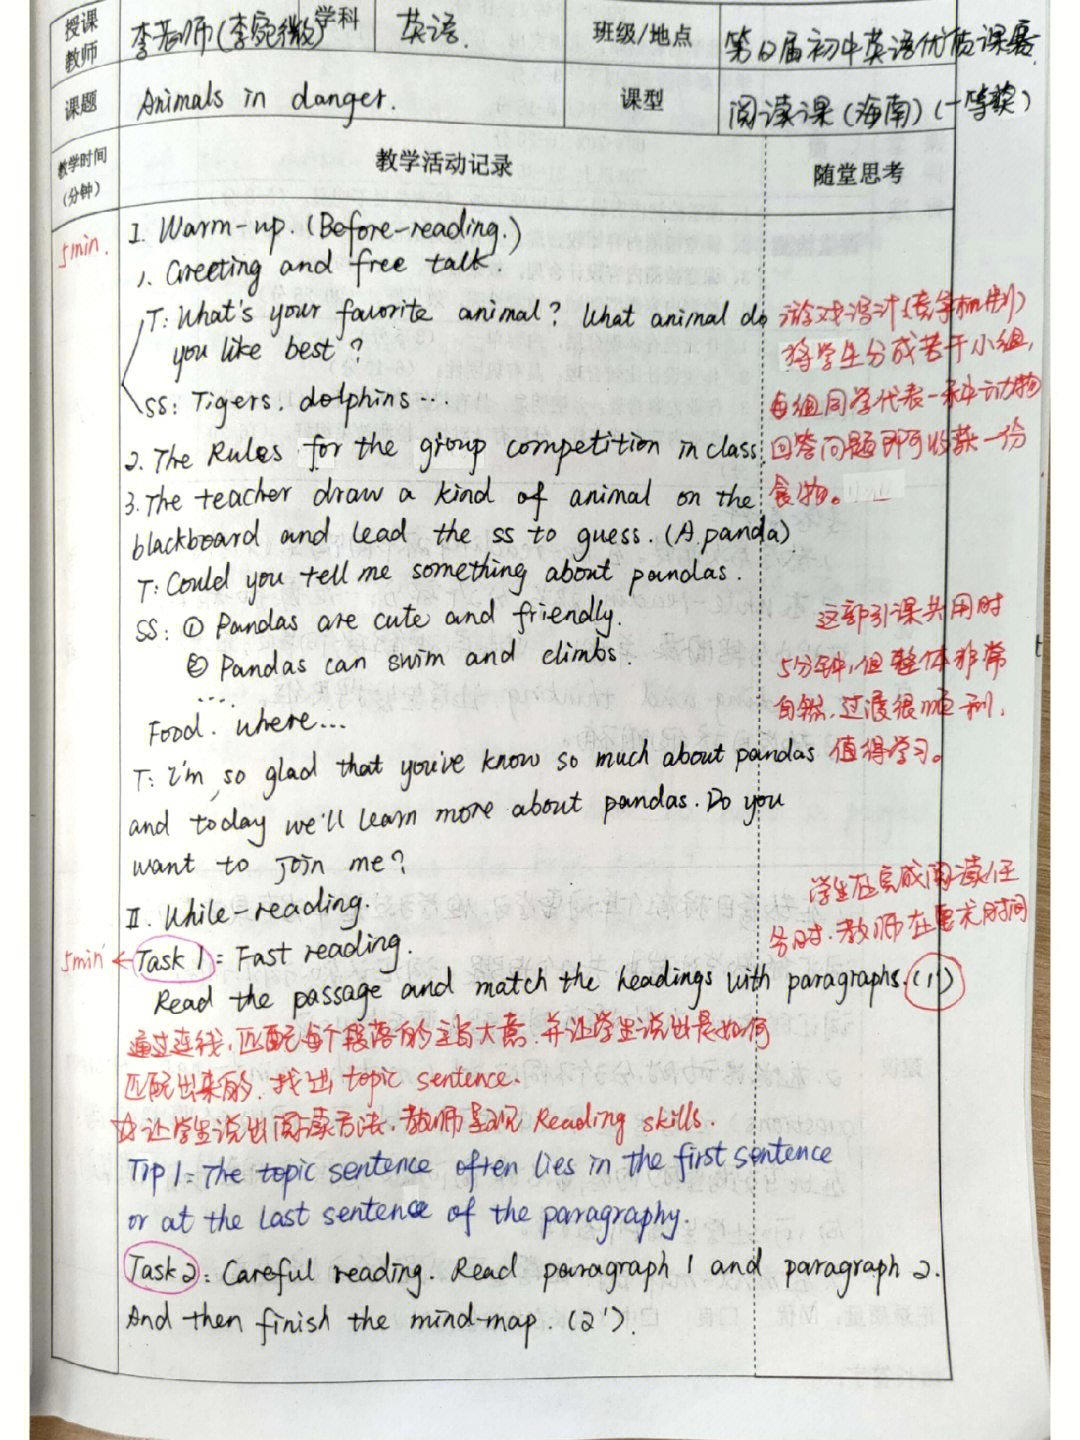 授课教师 李老师(李宛微) 学科 英语. 班级/地点 第12届初中英语优质课赛.
课题 Animals in danger. 课型 阅读课(海南)(一等奖)
教学时间(分钟) 教学活动记录 随堂思考
5min. I. Warm-up. (Before-reading.)
1. Greeting and free talk
T: What's your favorite animal? What animal do
you like best?
SS: Tigers. dolphins...
2. The Rules for the group competition in class.
3. The teacher draw a kind of animal on the
blackboard and lead the ss to guess. (A panda)
游戏设计(竞争机制)
将学生分成若干小组,
每组同学代表一种动物
回答问题即可收获一份
食物。
T: Could you tell me something about pandas.
SS: ① Pandas are cute and friendly.
② Pandas can swim and climbs.
....
Food. where...
这部引课共用时
5分钟,但整体非常
自然,过渡很顺利,
值得学习。
T: I'm so glad that you've know so much about pandas
and today we'll learn more about pandas. Do you
want to join me?
II. While-reading.
5min ← Task 1: Fast reading.
Read the passage and match the headings with paragraphs. (1')
学生在完成阅读任
务时,教师在要求时间
通过连线,匹配每个段落的主旨大意,并让学生说出是如何
匹配出来的,找出topic sentence.
☆让学生说出阅读方法,教师呈现Reading skills.
Tip 1: The topic sentence often lies in the first sentence
or at the last sentence of the paragraphy.
Task 2: Careful reading. Read paragraph 1 and paragraph 2.
And then finish the mind-map. (2').